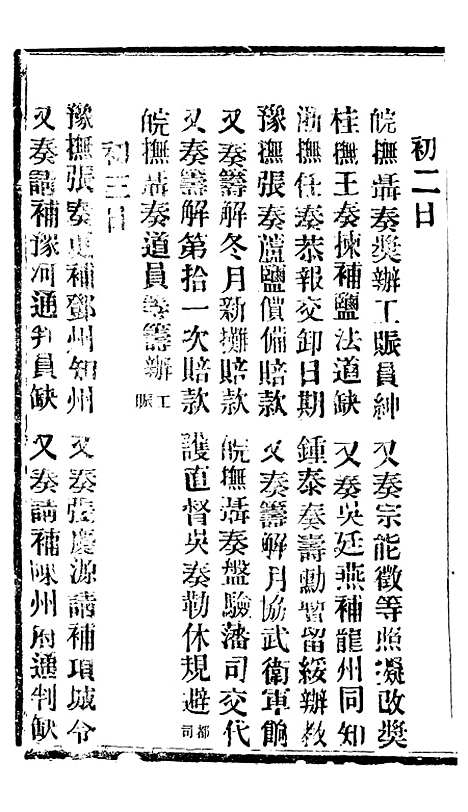 初二日
皖撫聶奏獎辦工賑員紳　又奏宗能徵等照擬改獎
桂撫王奏揀補鹽法道缺　又奏吳廷燕補龍州同知
浙撫任奏恭報交卸日期　鍾泰奏壽勳暫留綏辦教
豫撫張奏蘆鹽價備賠款　又奏籌解月協武衛軍餉
又奏籌解冬月新攤賠款　皖撫聶奏盤驗藩司交代
又奏籌解第拾一次賠款　護直督吳奏勒休規避都司
皖撫聶奏道員籌辦工賑
初三日
豫撫張奏更補鄧州知州　又奏張慶源請補項城令
又奏請補豫河通判員缺　又奏請補陳州府通判缺